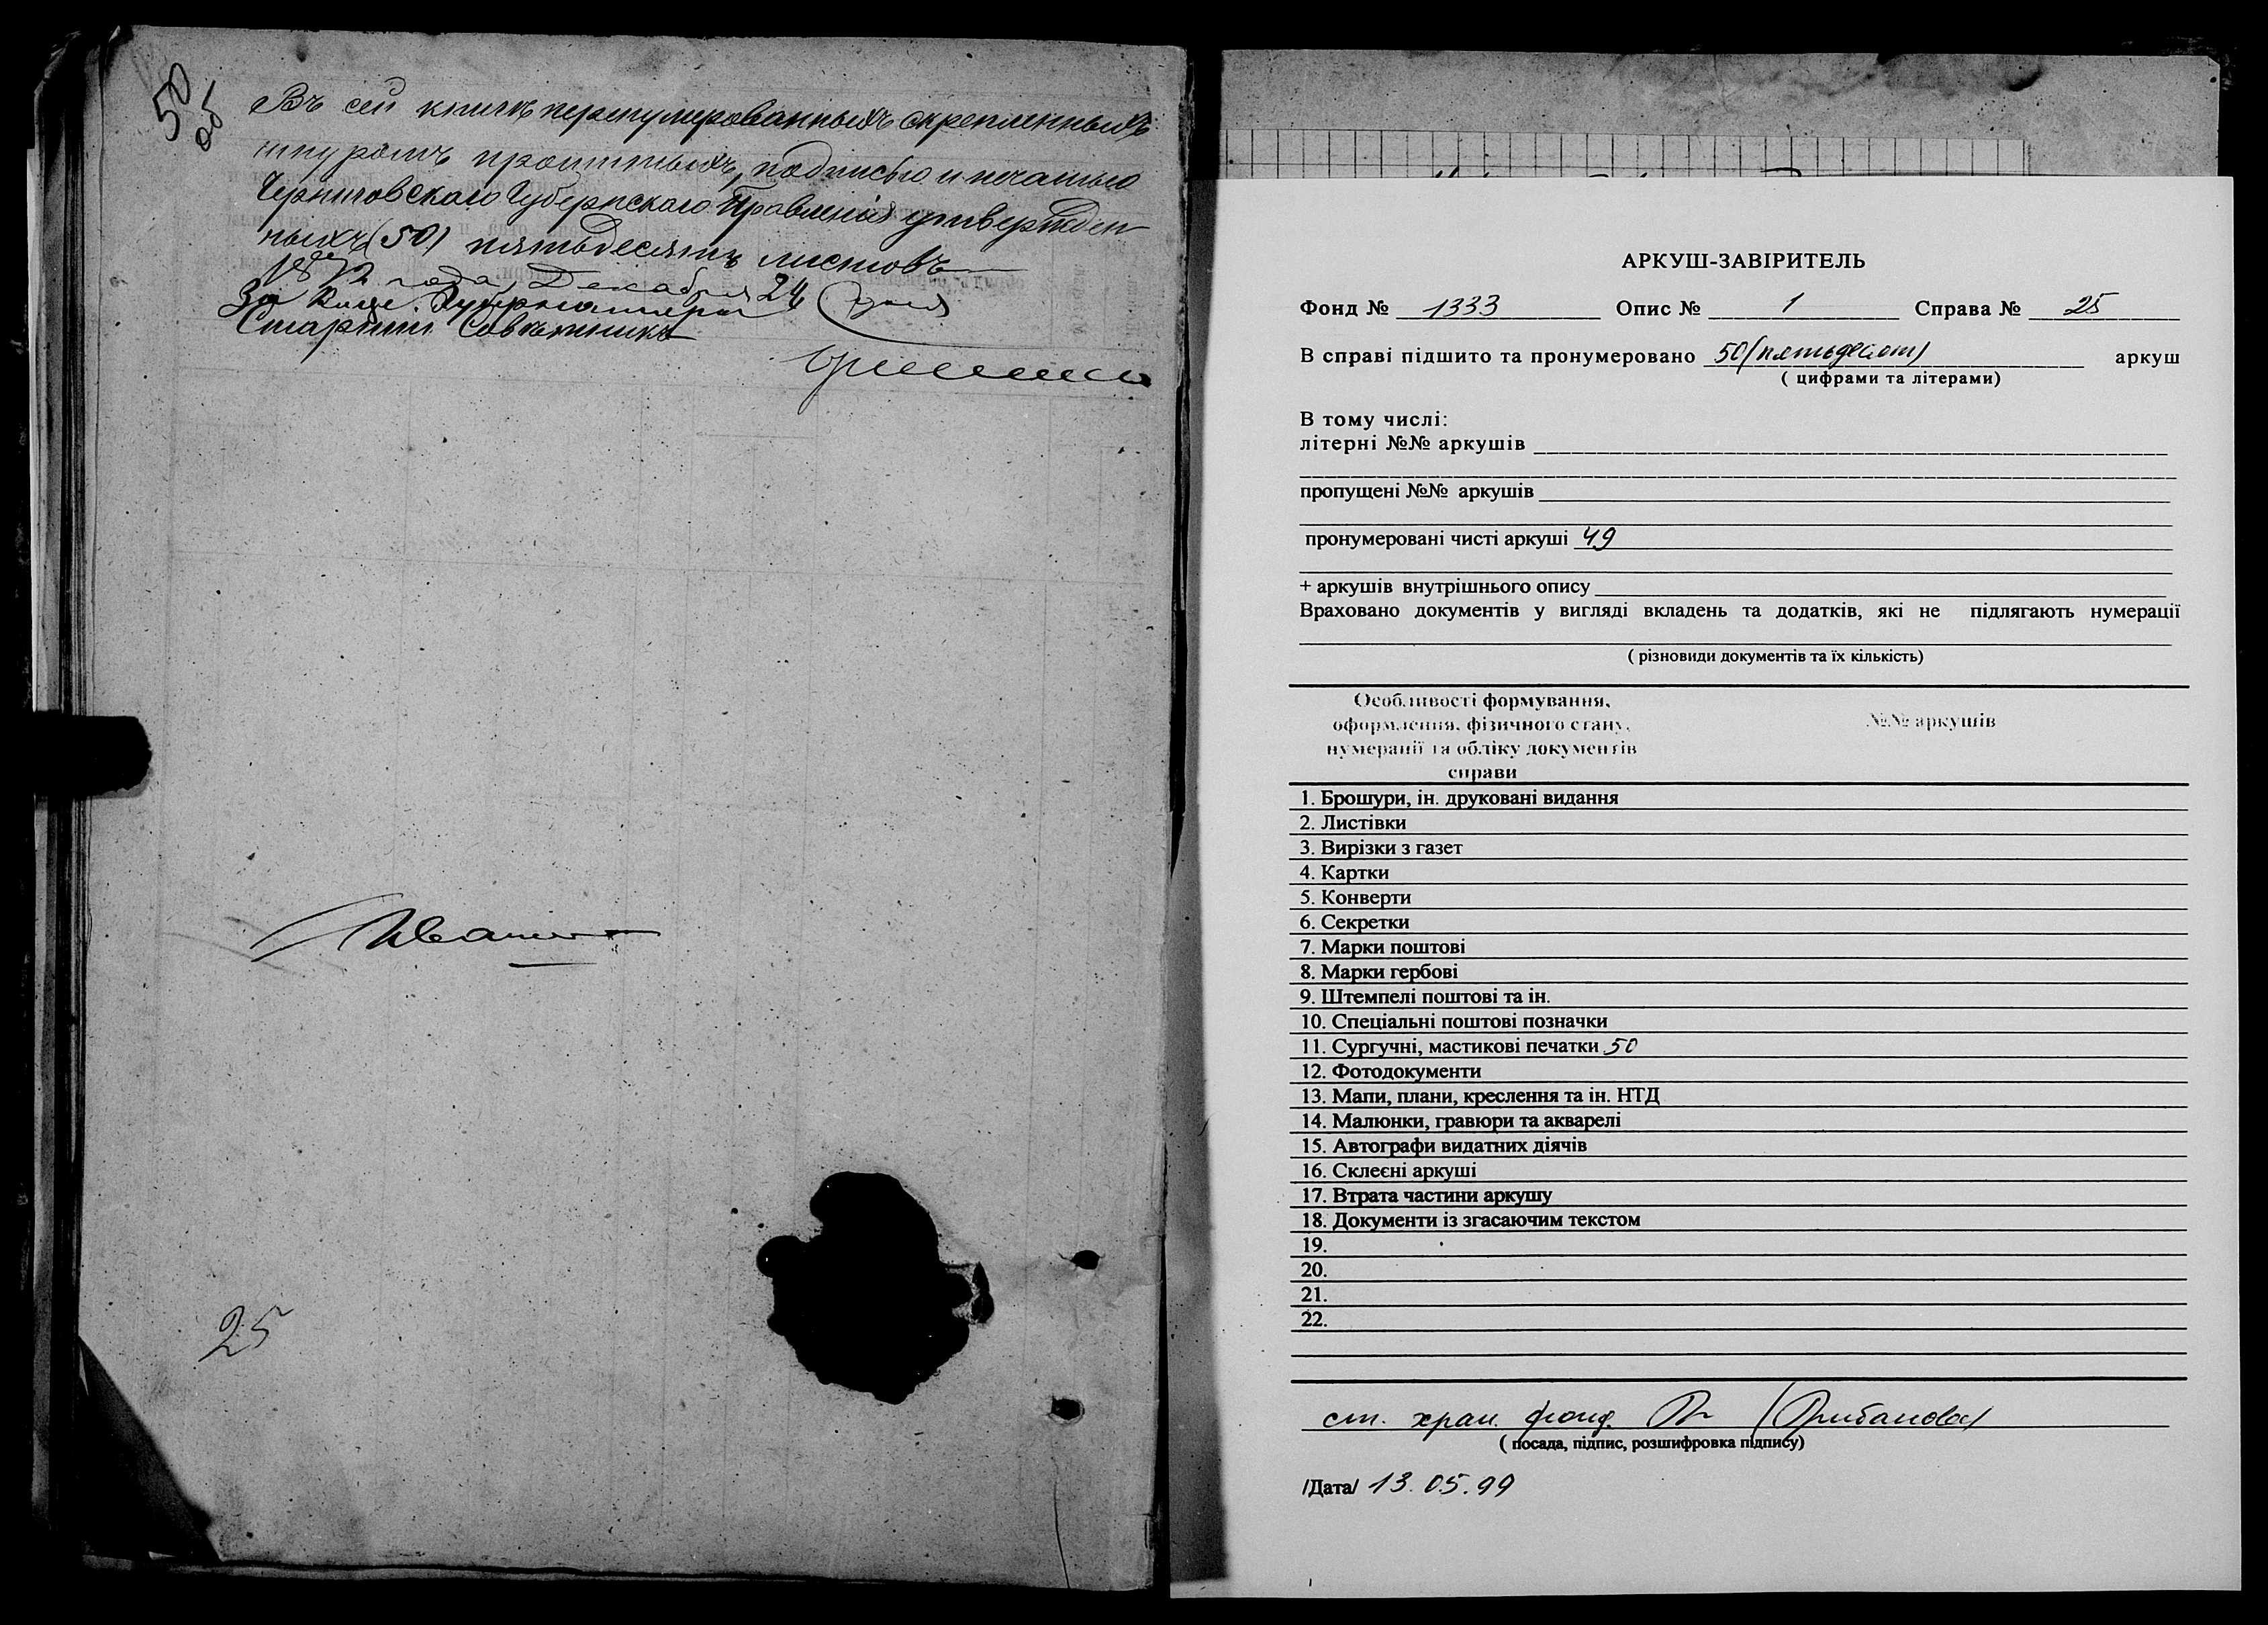 50
об
Въ сей книгѣ перенумерованныхъ скрепленныхъ
шнуромъ прошитыхъ, подписью и печатью
Черниговскаго Губернскаго Правленія утвержден-
ныхъ (50) пятьдесятъ листовъ
1872 года, Декабря 24 дня
За Вице Губернатора
Старшій Совѣтникъ
25
АРКУШ-ЗАВІРИТЕЛЬ
Фонд № 1333 Опис № 1 Справа № 25
В справі підшито та пронумеровано 50 (пятьдесят) аркуш
( цифрами та літерами)
В тому числі:
літерні №№ аркушів
пропущені №№ аркушів
пронумеровані чисті аркуші 49
+ аркушів внутрішнього опису
Враховано документів у вигляді вкладень та додатків, які не підлягають нумерації
( різновиди документів та їх кількість)
Особливості формування,
оформлення, фізичного стану,
нумерації та обліку документів
справи
№№ аркушів
1. Брошури, ін. друковані видання
2. Листівки
3. Вирізки з газет
4. Картки
5. Конверти
6. Секретки
7. Марки поштові
8. Марки гербові
9. Штемпелі поштові та ін.
10. Спеціальні поштові позначки
11. Сургучні, мастикові печатки 50
12. Фотодокументи
13. Мапи, плани, креслення та ін. НТД
14. Малюнки, гравюри та акварелі
15. Автографи видатних діячів
16. Склеєні аркуші
17. Втрата частини аркушу
18. Документи із згасаючим текстом
19.
20.
21.
22.
ст. хран. фонд.
( посада, підпис, розшифровка підпису)
/Дата/ 13.05.99